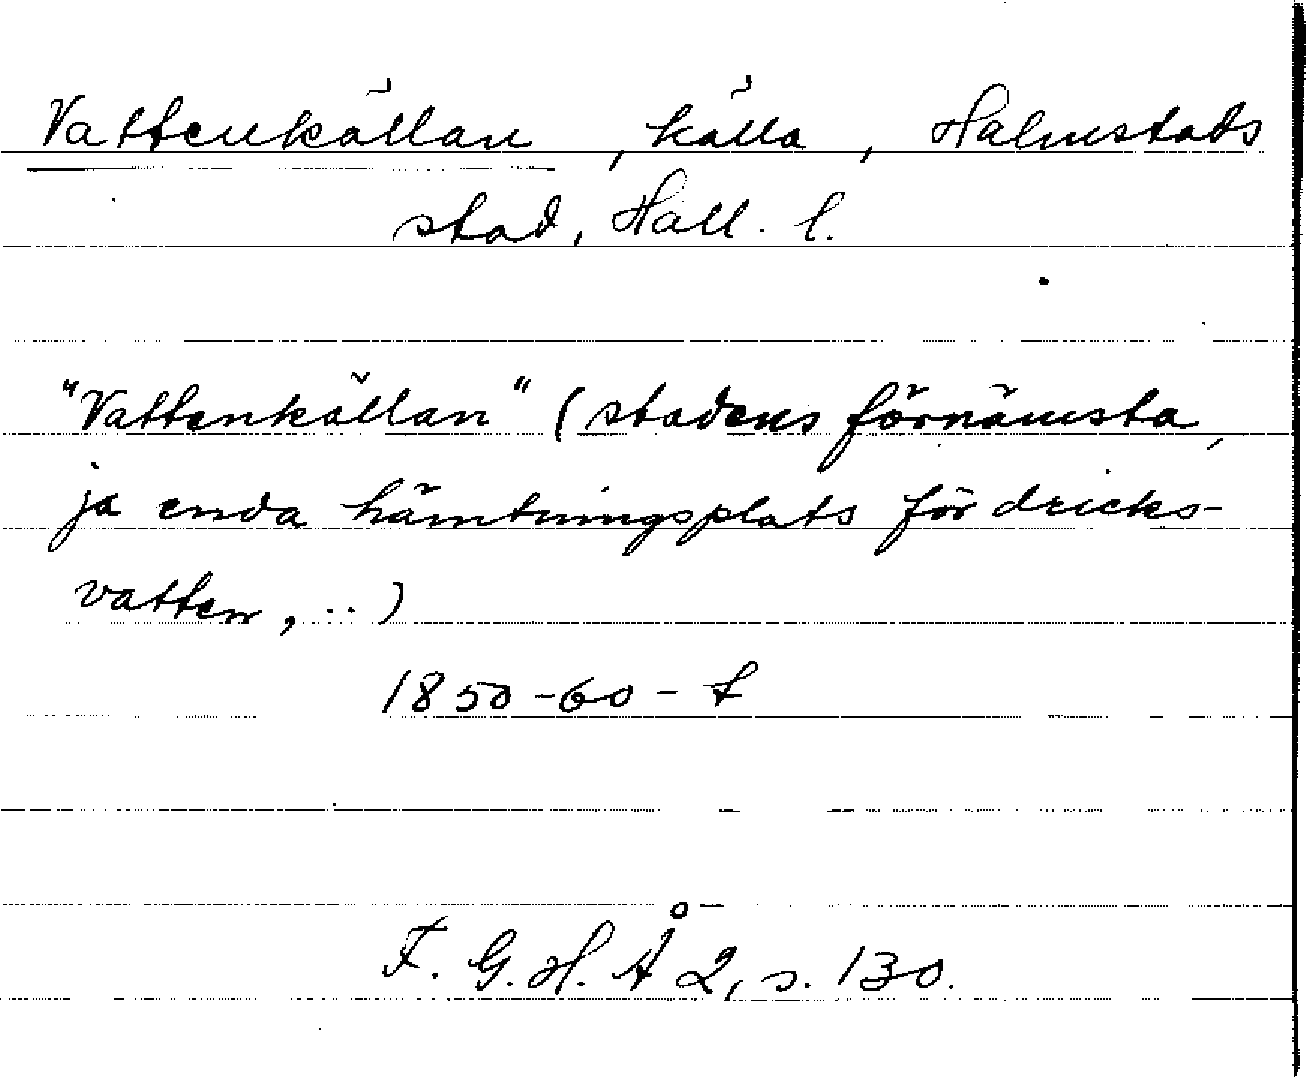 Vattenkällan, källa, Halmstads
stad, Hall. l.
"Vattenkällan" (stadens förnämsta,
ja enda hämtningsplats för dricks-
vatten, ...)
1850-60-t
F. G. H. Å 2, s. 130.